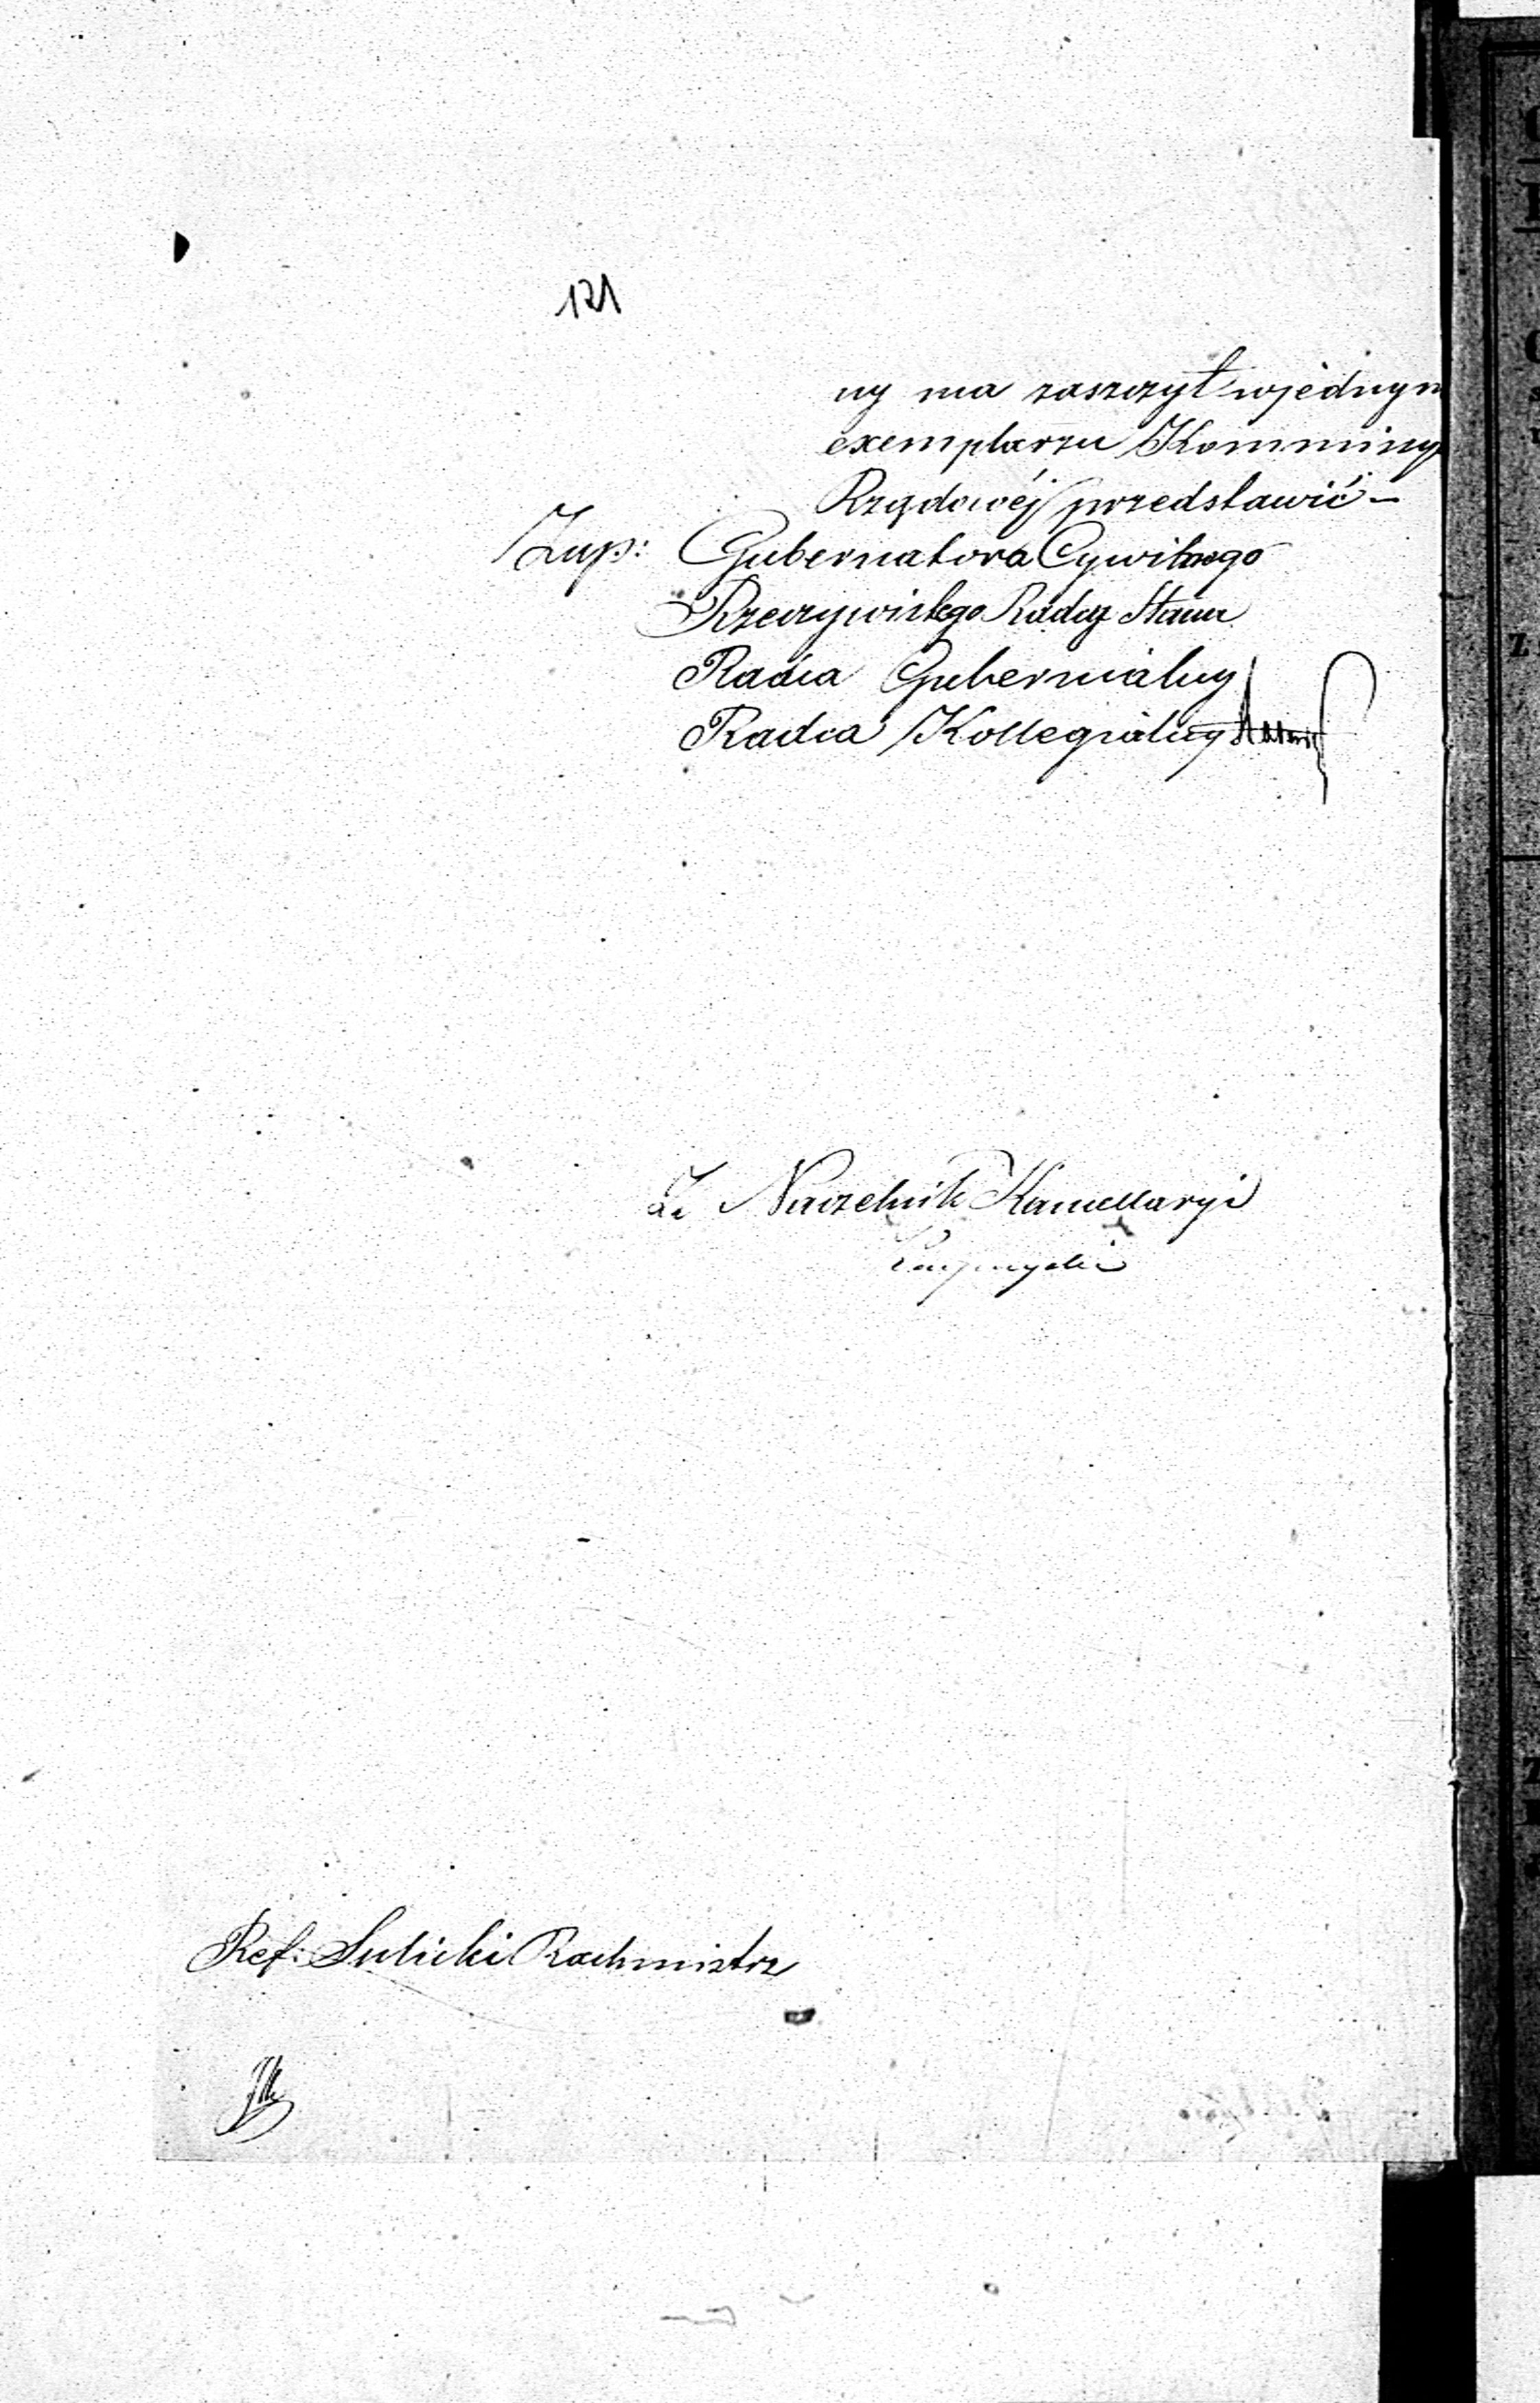 121
ny ma zaszczyt w jednym
exemplarzu Kommissyi
Rządowéj przedstawić –
Zap: Gubernatora Cywilnego
Rzeczywistego Radcy Stanu
Radca Gubernialny
Radca Kollegialny
Za Naczelnik Kancellaryi
Ref: Sulicki Rachmistrz